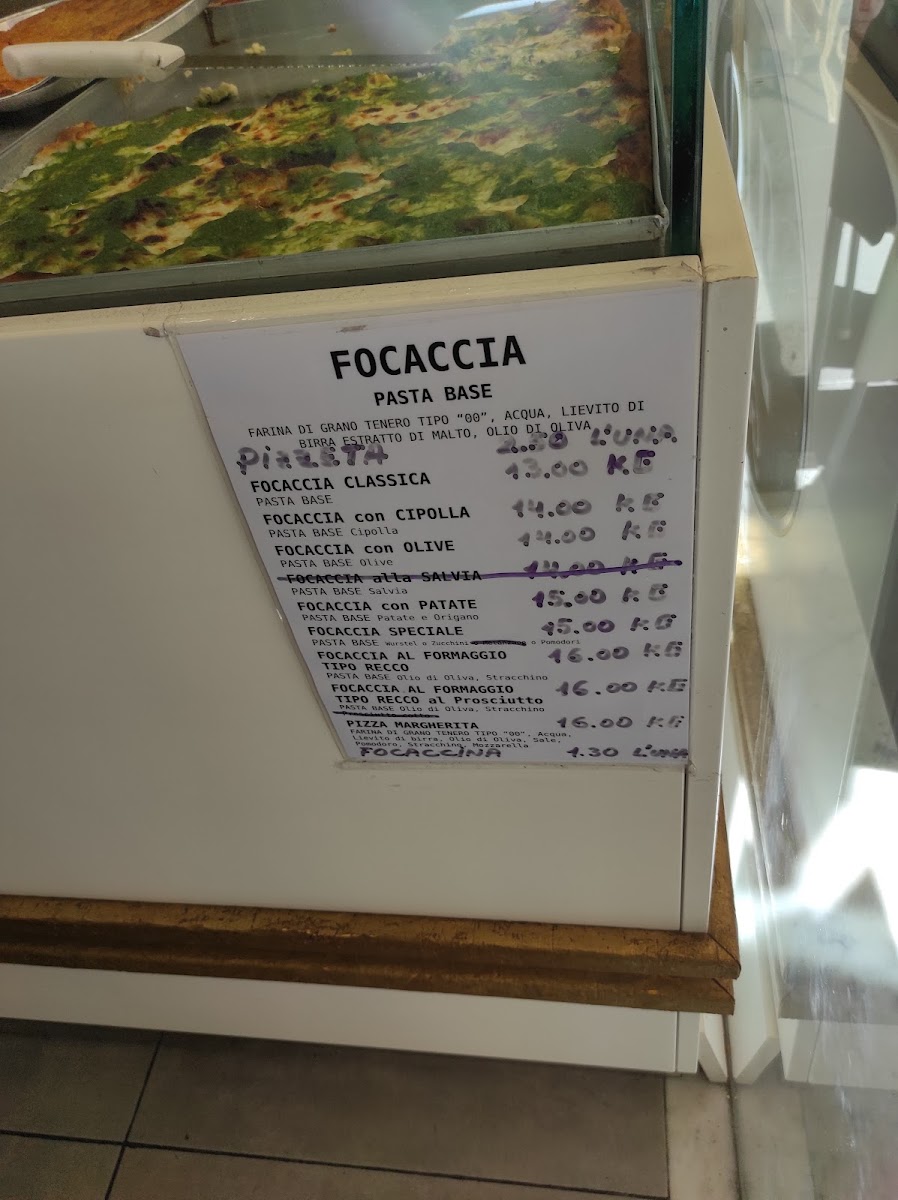 FOCACCIA
PASTA BASE
FARINA DI GRANO TENERO TIPO "00", ACQUA, LIEVITO DI
BIRRA ESTRATTO DI MALTO, OLIO DI OLIVA
PIZZETA 2.50 L'UNA
FOCACCIA CLASSICA 13.00 KG
PASTA BASE
FOCACCIA con CIPOLLA 14.00 KG
PASTA BASE Cipolla
FOCACCIA con OLIVE 14.00 KG
PASTA BASE Olive
FOCACCIA alla SALVIA 14.00 KG
PASTA BASE Salvia
FOCACCIA con PATATE 15.00 KG
PASTA BASE Patate e Origano
FOCACCIA SPECIALE 15.00 KG
PASTA BASE Wurstel o Zucchini o Pomodori
FOCACCIA AL FORMAGGIO 16.00 KG
TIPO RECCO
PASTA BASE Olio di Oliva, Stracchino
FOCACCIA AL FORMAGGIO 16.00 KG
TIPO RECCO al Prosciutto
PASTA BASE Olio di Oliva, Stracchino
Prosciutto cotto
PIZZA MARGHERITA 16.00 KG
FARINA DI GRANO TENERO TIPO "00", Acqua,
Lievito di birra, Olio di Oliva, Sale,
Pomodoro, Stracchino, Mozzarella
FOCACCINA 1.30 L'UNA